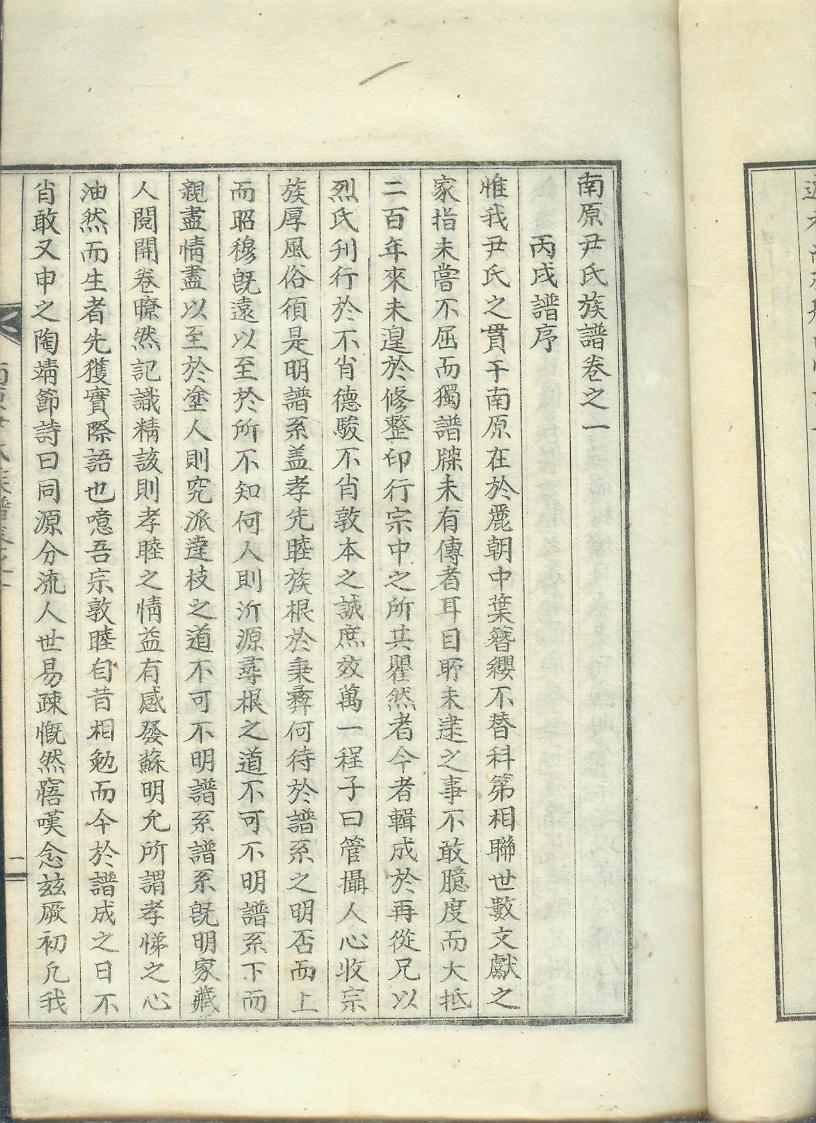 南原尹氏族譜卷之一
丙戌譜序
惟我尹氏之貫于南原在於麗朝中葉簪纓不替科第相聯世數文獻之
家指未嘗不屈而獨譜牒未有傳者耳目所未逮之事不敢臆度而大抵
二百年來未遑於修整印行宗中之所共瞿然者今者輯成於再從兄以
烈氏刊行於不肖德駿不肖敦本之誠庶效萬一程子曰管攝人心收宗
族厚風俗須是明譜系盖孝先睦族根於秉彝何待於譜系之明否而上
而昭穆旣遠以至於所不知何人則沂源尋根之道不可不明譜系下而
親盡情盡以至於塗人則究派達枝之道不可不明譜系譜系旣明家藏
人閱開卷瞭然記識精該則孝睦之情益有感發蘇明允所謂孝悌之心
油然而生者先獲實際語也噫吾宗敦睦自昔相勉而今於譜成之日不
肖敢又申之陶靖節詩曰同源分流人世易疎慨然寤嘆念玆厥初凡我
南原尹氏族譜卷之一
一